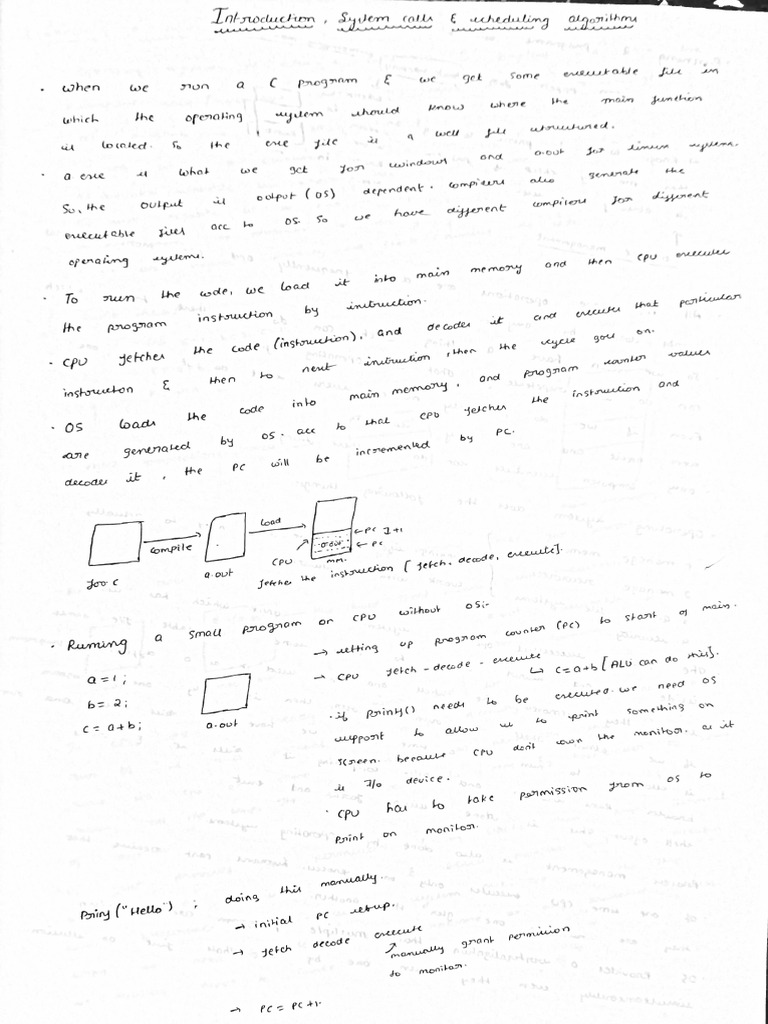 Introduction, System calls & scheduling algorithms
· When we run a C program & we get some executable file in
which the operating system should know where the main function
is located. So the exe file is a well file structured.
· a exe is what we get for windows and a.out for linux system.
So, the output is output (OS) dependent. Compilers also generate the
executable files acc to OS. So we have different compilers for different
operating systems.
· To run the code, we load it into main memory and then CPU executes
the program instruction by instruction.
· CPU fetches the code (instruction), and decodes it and executes that particular
instruction & then to next instruction, then the cycle goes on.
· OS loads the code into main memory, and program counter values
are generated by OS. acc to that CPU fetches the instruction and
decodes it, the PC will be incremented by PC.
foo.c
compile
a.out
load
a.out
← PC I+1
← PC
mm.
CPU
fetches the instruction [fetch, decode, execute].
· Running a small program on CPU without OS:-
a = 1;
b = 2;
c = a+b;
a.out
→ setting up program counter (PC) to start of main.
→ CPU fetch - decode - execute
↳ c = a+b [ALU can do this].
· if printf() needs to be executed. we need OS
support to allow us to print something on
screen. because CPU don't own the monitor. as it
is I/O device.
· CPU has to take permission from OS to
print on monitor.
Print("Hello"); doing this manually.
→ initial PC setup.
→ fetch decode execute
↗ manually grant permission
to monitor.
→ PC = PC+1.